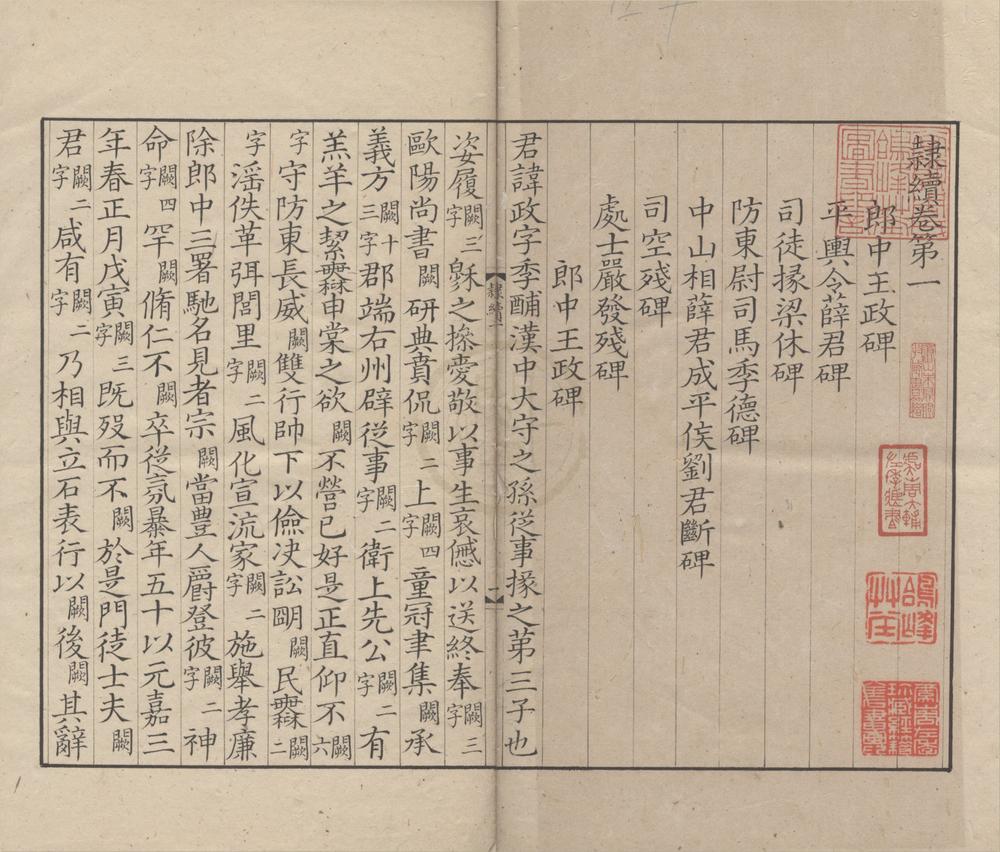 隸續卷第一
郎中王政碑
平輿令薛君碑
司徒掾梁休碑
防東尉司馬季德碑
中山相薛君成平侯劉君斷碑
司空殘碑
處士嚴發殘碑
郎中王政碑
君諱政字季酺漢中大守之孫從事掾之苐三子也
隸續一
一
姿履闕三字之摻愛敬以事生哀慽以送終奉闕三字
歐陽尚書闕研典賁侃闕二字上闕四字童冠聿集闕承
義方闕十三字郡端右州辟從事闕二字衛上先公闕二字有
羔羊之絜無申棠之欲闕不營已好是正直仰不闕六
字守防東長威闕雙行帥下以儉决訟明闕民無闕二
字滛佚革弭閭里闕二字風化宣流家闕二字施舉孝廉
除郎中三署馳名見者宗闕當豊人爵登彼闕二字神
命闕四字罕闕脩仁不闕卒從氛暴年五十以元嘉三
年春正月戊寅闕三字既歿而不闕於是門徒士夫闕
君闕二字咸有闕二字乃相與立石表行以闕後闕其辭
鴿峰草堂